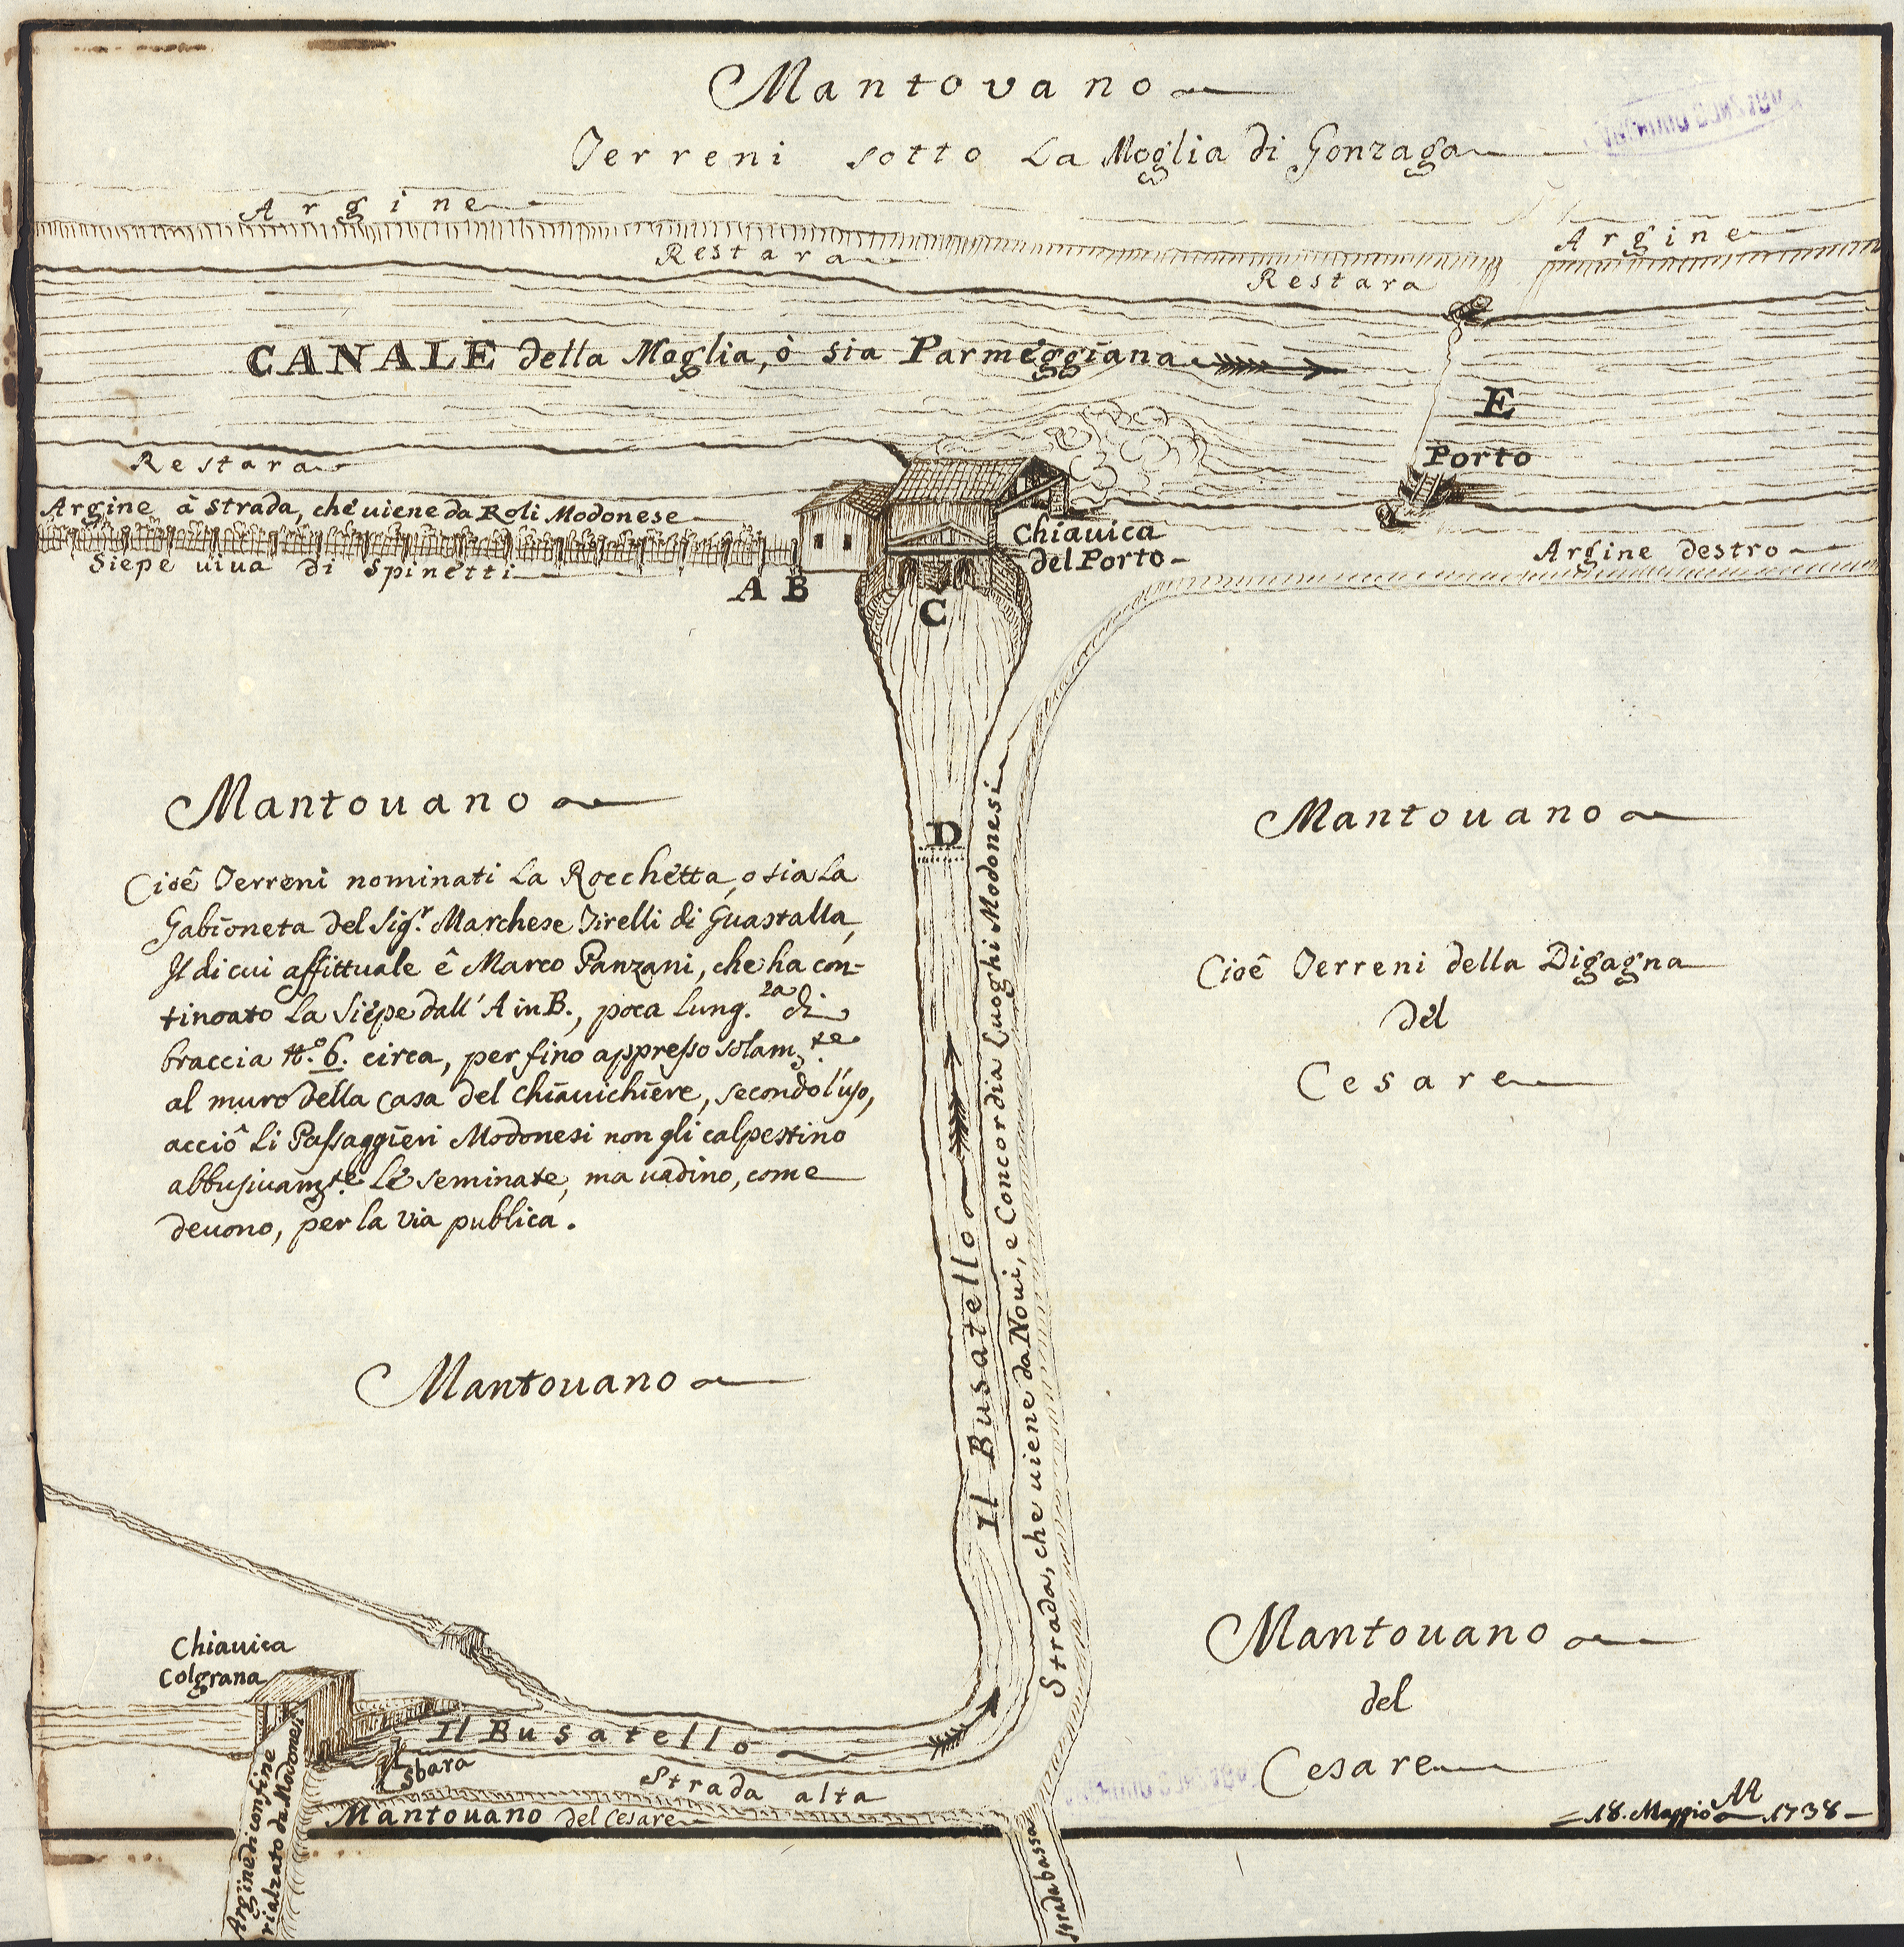 Mantovano
Terreni sotto La Moglia di Gonzaga
Argine
Argine
Restara
Restara
CANALE della Moglia, ò sia Parmeggiana
E
Porto
Restara
Argine à strada, che uiene da Roli Modonese
Siepe uiua di Spinetti
A B
C
Chiauica
del Porto
Argine destro
D
Mantouano
Cioê Terreni nominati La Rocchetta, o sia La
Gabioneta del Sig.r Marchese Tirelli di Guastalla,
Il di cui affittuale ê Marco Panzani, che ha con-
tinoato La Siepe dall' A in B., poca Lung.za di
braccia N.o 6. circa, per fino appresso solam.te
al muro della Casa del Chiauichiere, secondo l'uso,
acciô Li Passaggieri Modonesi non gli calpestino
abbusiuam.te Le seminate, ma uadino, come
deuono, per la via publica.
Mantouano
Cioê Terreni della Digagna
del
Cesare
Il Busatello
Strada, che uiene da Noui, e Concordia Luoghi Modonesi
Mantouano
Mantouano
del
Cesare
Chiauica
Colgrana
Il Busatello
Sbara
Strada alta
Mantouano del Cesare
Argine di confine
rialzato da Modonesi
Strada bassa
18. Maggio 1738